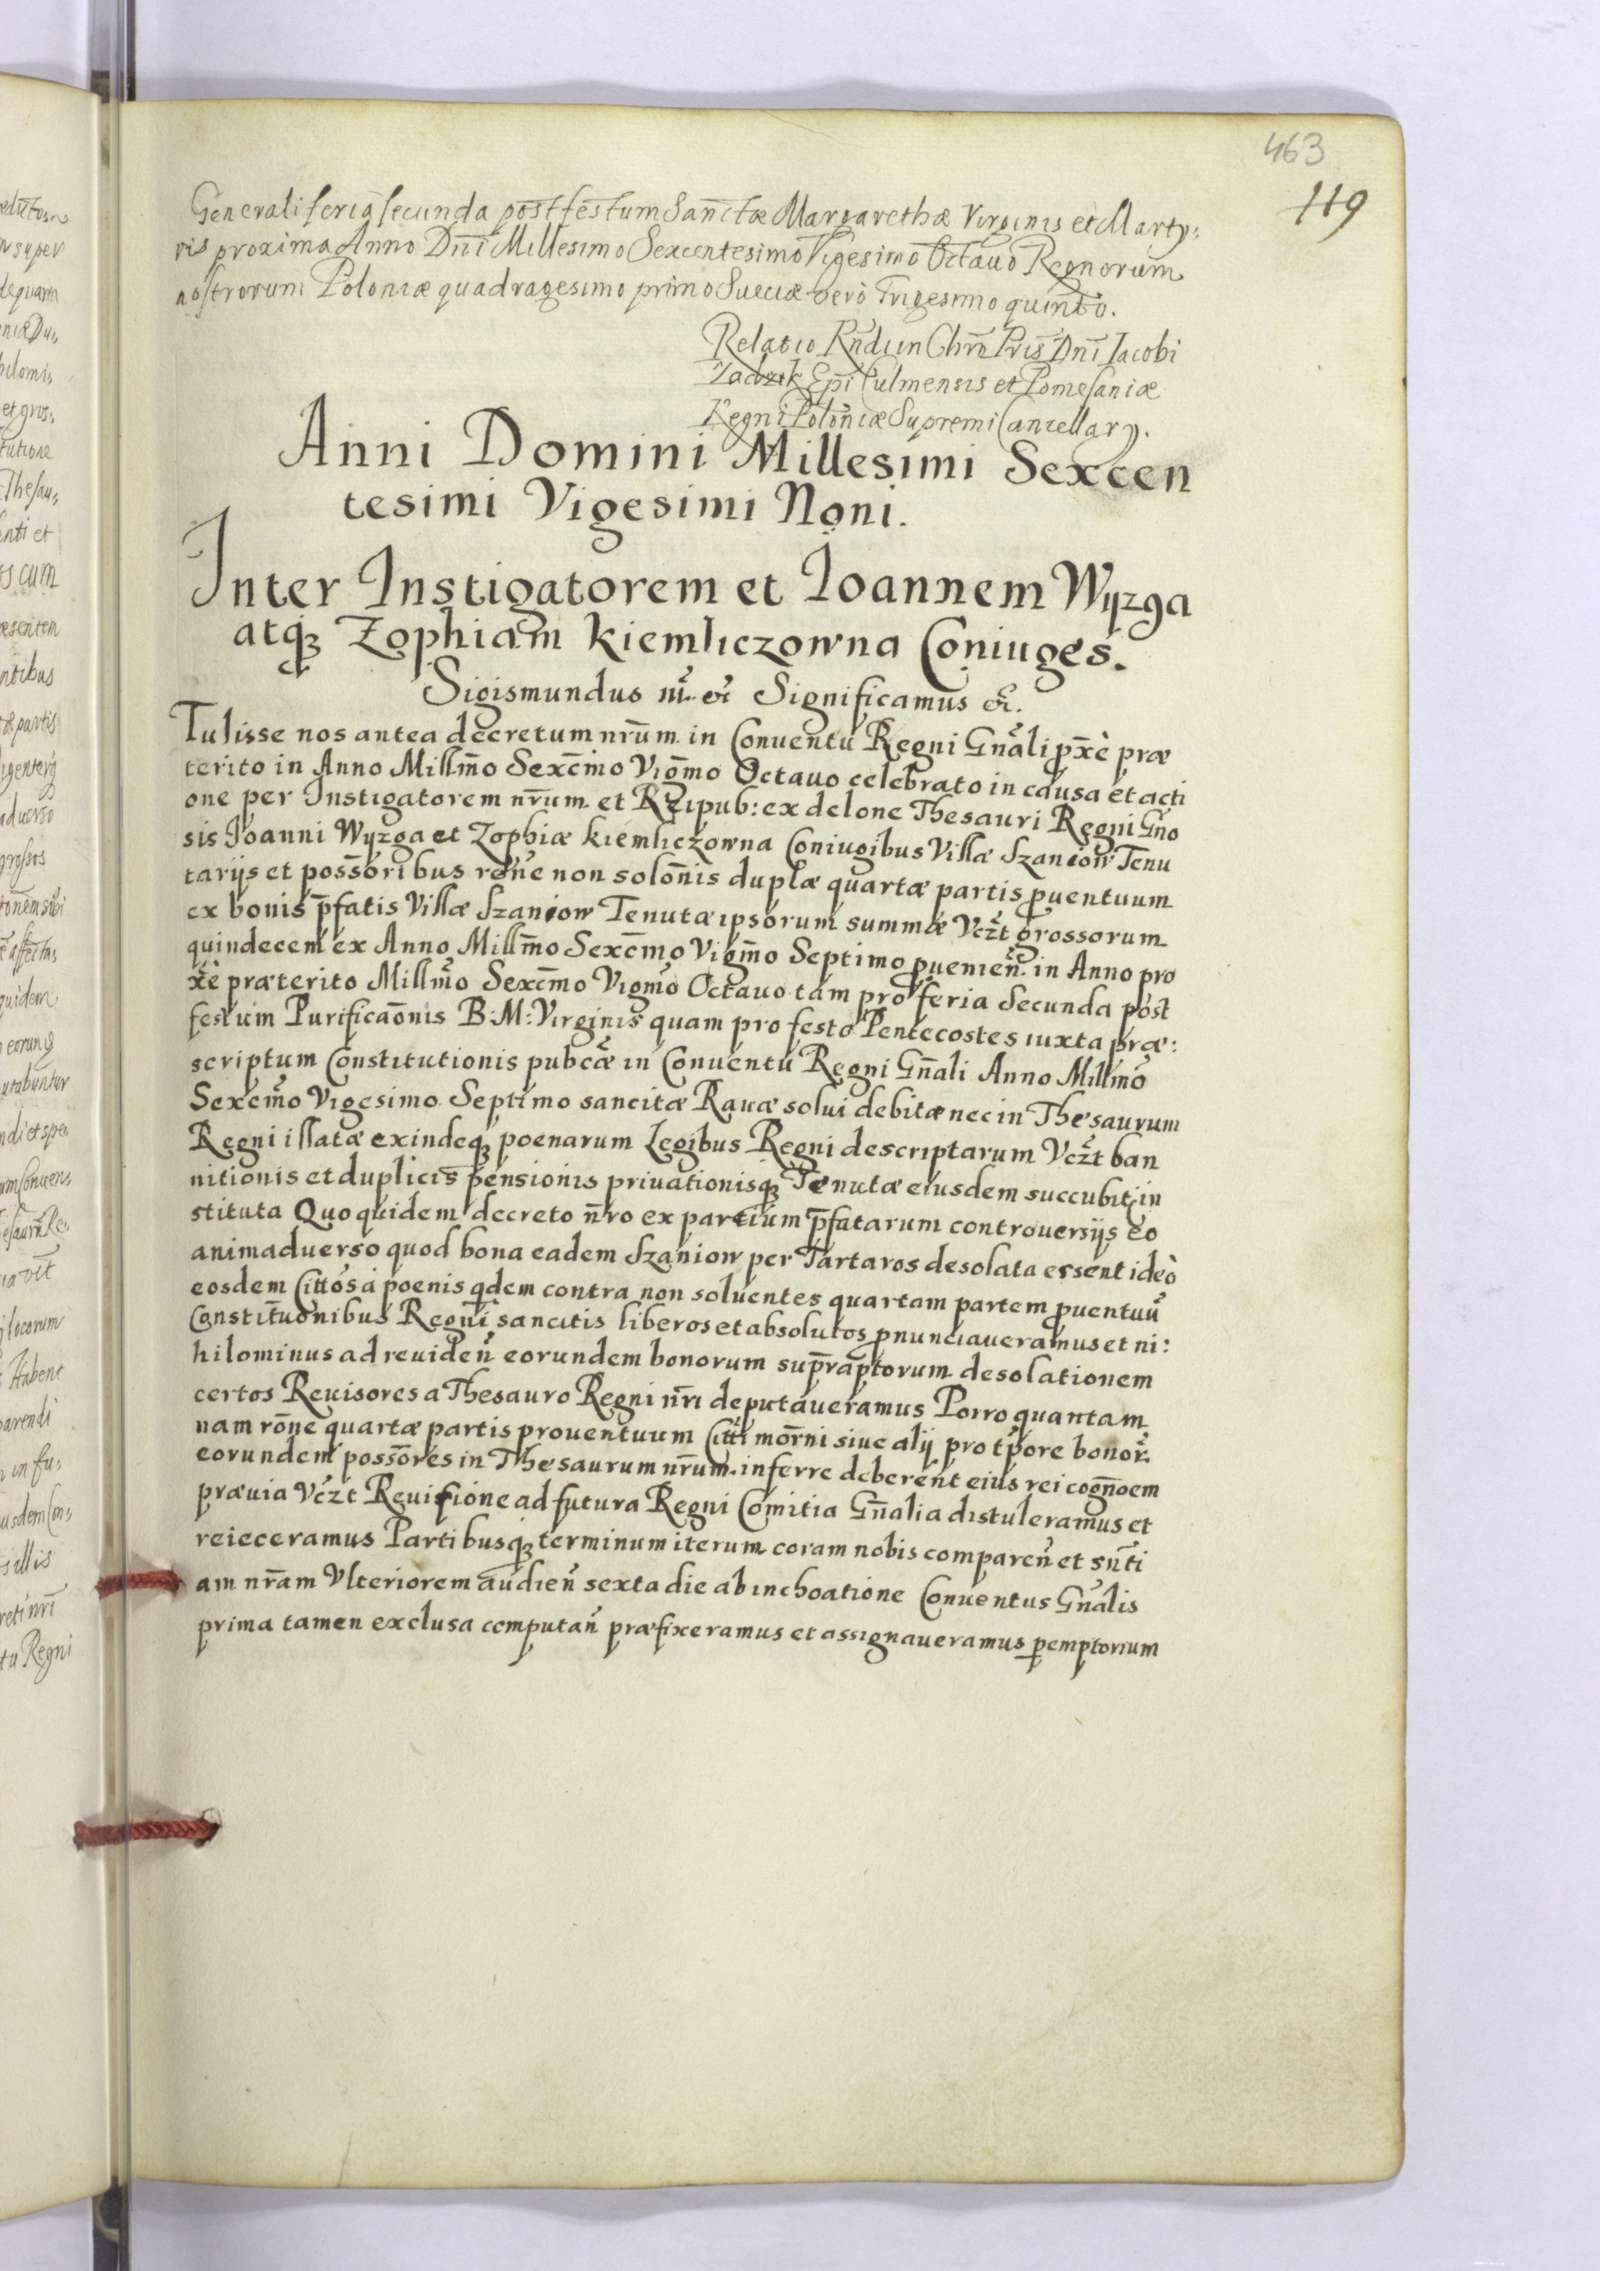 463
119
Generali feria secunda post festum Sanctæ Margarethæ Virginis et Marty:
ris proxima Anno Dñi Millesimo Sexcentesimo Vigesimo Octauo Regnorum
nostrorum Poloniæ quadragesimo primo Sueciæ verò Trigesimo quinto.
Relatio Rñdi in Chrō Pris Dñi Iacobi
Zadzik Epi Culmensis et Pomesaniæ
Regni Poloniæ Supremi Cancellarÿ.
Anni Domini Millesimi Sexcen
tesimi Vigesimi Noni.
Inter Instigatorem et Ioannem Wyzga
atq₃ Zophiam Kiemliczowna Coniuges.
Sigismundus III. etc̃ Significamus etc̃.
Tulisse nos antea decretum nr̄um in Conuentu Regni Gñali px̄è præ
terito in Anno Millm̄o Sexc̄mo Vigm̄o Octauo celebrato in causa et acti
one per Instigatorem nr̄um et Reipub: ex delone Thesauri Regni Gño
sis Ioanni Wyzga et Zophiæ Kiemliczowna Coniugibus Villæ Szaniow Tenu
tarijs et poss̄oribus rōne non solōnis duplæ quartæ partis puentuum
ex bonis p̄fatis Villæ Szaniow Tenutæ ipsorum summæ Vcz̃t grossorum
quindecem ex Anno Millm̄o Sexc̄mo Vigm̄o Septimo puenieñ in Anno pro
xè præterito Millm̄o Sexc̄mo Vigm̄o Octauo tam pro feria Secunda post
festum Purificaōnis B: M: Virginis quam pro festo Pentecostes iuxta præ:
scriptum Constitutionis pubcæ in Conuentu Regni Gñali Anno Millmō
Sexcm̄o Vigesimo Septimo sancitæ Rauæ solui debitæ nec in Thesaurum
Regni illatæ exindeq₃ poenarum Legibus Regni descriptarum Vcz̃t ban
nitionis et duplicis pensionis priuationisq₃ Tenutæ eiusdem succubiti in
stituta Quo quidem decreto ñro ex partium p̄fatarum controuersijs eo
animaduerso quod bona eadem Szaniow per Tartaros desolata essent ideò
eosdem Cittos à poenis qdem contra non soluentes quartam partem puentuū
Constitūonibus Regni sancitis liberos et absolutos pnunciaueramus et ni:
hilominus ad reuideñ eorundem bonorum supr̄aptorum desolationem
certos Reuisores a Thesauro Regni nr̄i deputaueramus Porro quantam
nam rōne quartæ partis prouentuum Citti mōrni siue alij pro tpore bonor̃
eorundem poss̄ores in Thesaurum nr̄um inferre deberent eius rei cognoem
præuia Vcz̃t Reuisione ad futura Regni Comitia Gñalia distuleramus et
reieceramus Partibusq₃ terminum iterum coram nobis compareñ et snt̄i
am nr̄am Vlteriorem audieñ sexta die ab inchoatione Conuentus Gñalis
prima tamen exclusa computañ præfixeramus et assignaueramus pemptorium